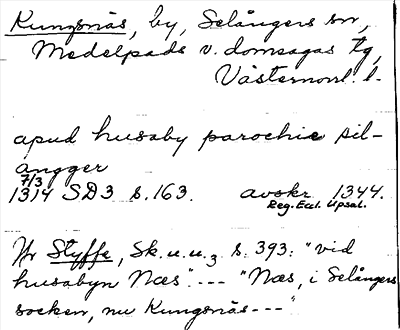 Kungsnäs, by, Selångers sn,
Medelpads v. domsagas tg,
Västernorrl. l.
apud husaby parochie sil-
angger
7/3
1314 SD3 s. 163. avskr. 1344.
Reg. Eccl. Upsal.
Jfr Styffe, Sk.u.u.3 s. 393: "vid
husabyn Næs". --- "Næs, i Selångers
socken, nu Kungsnäs ---"